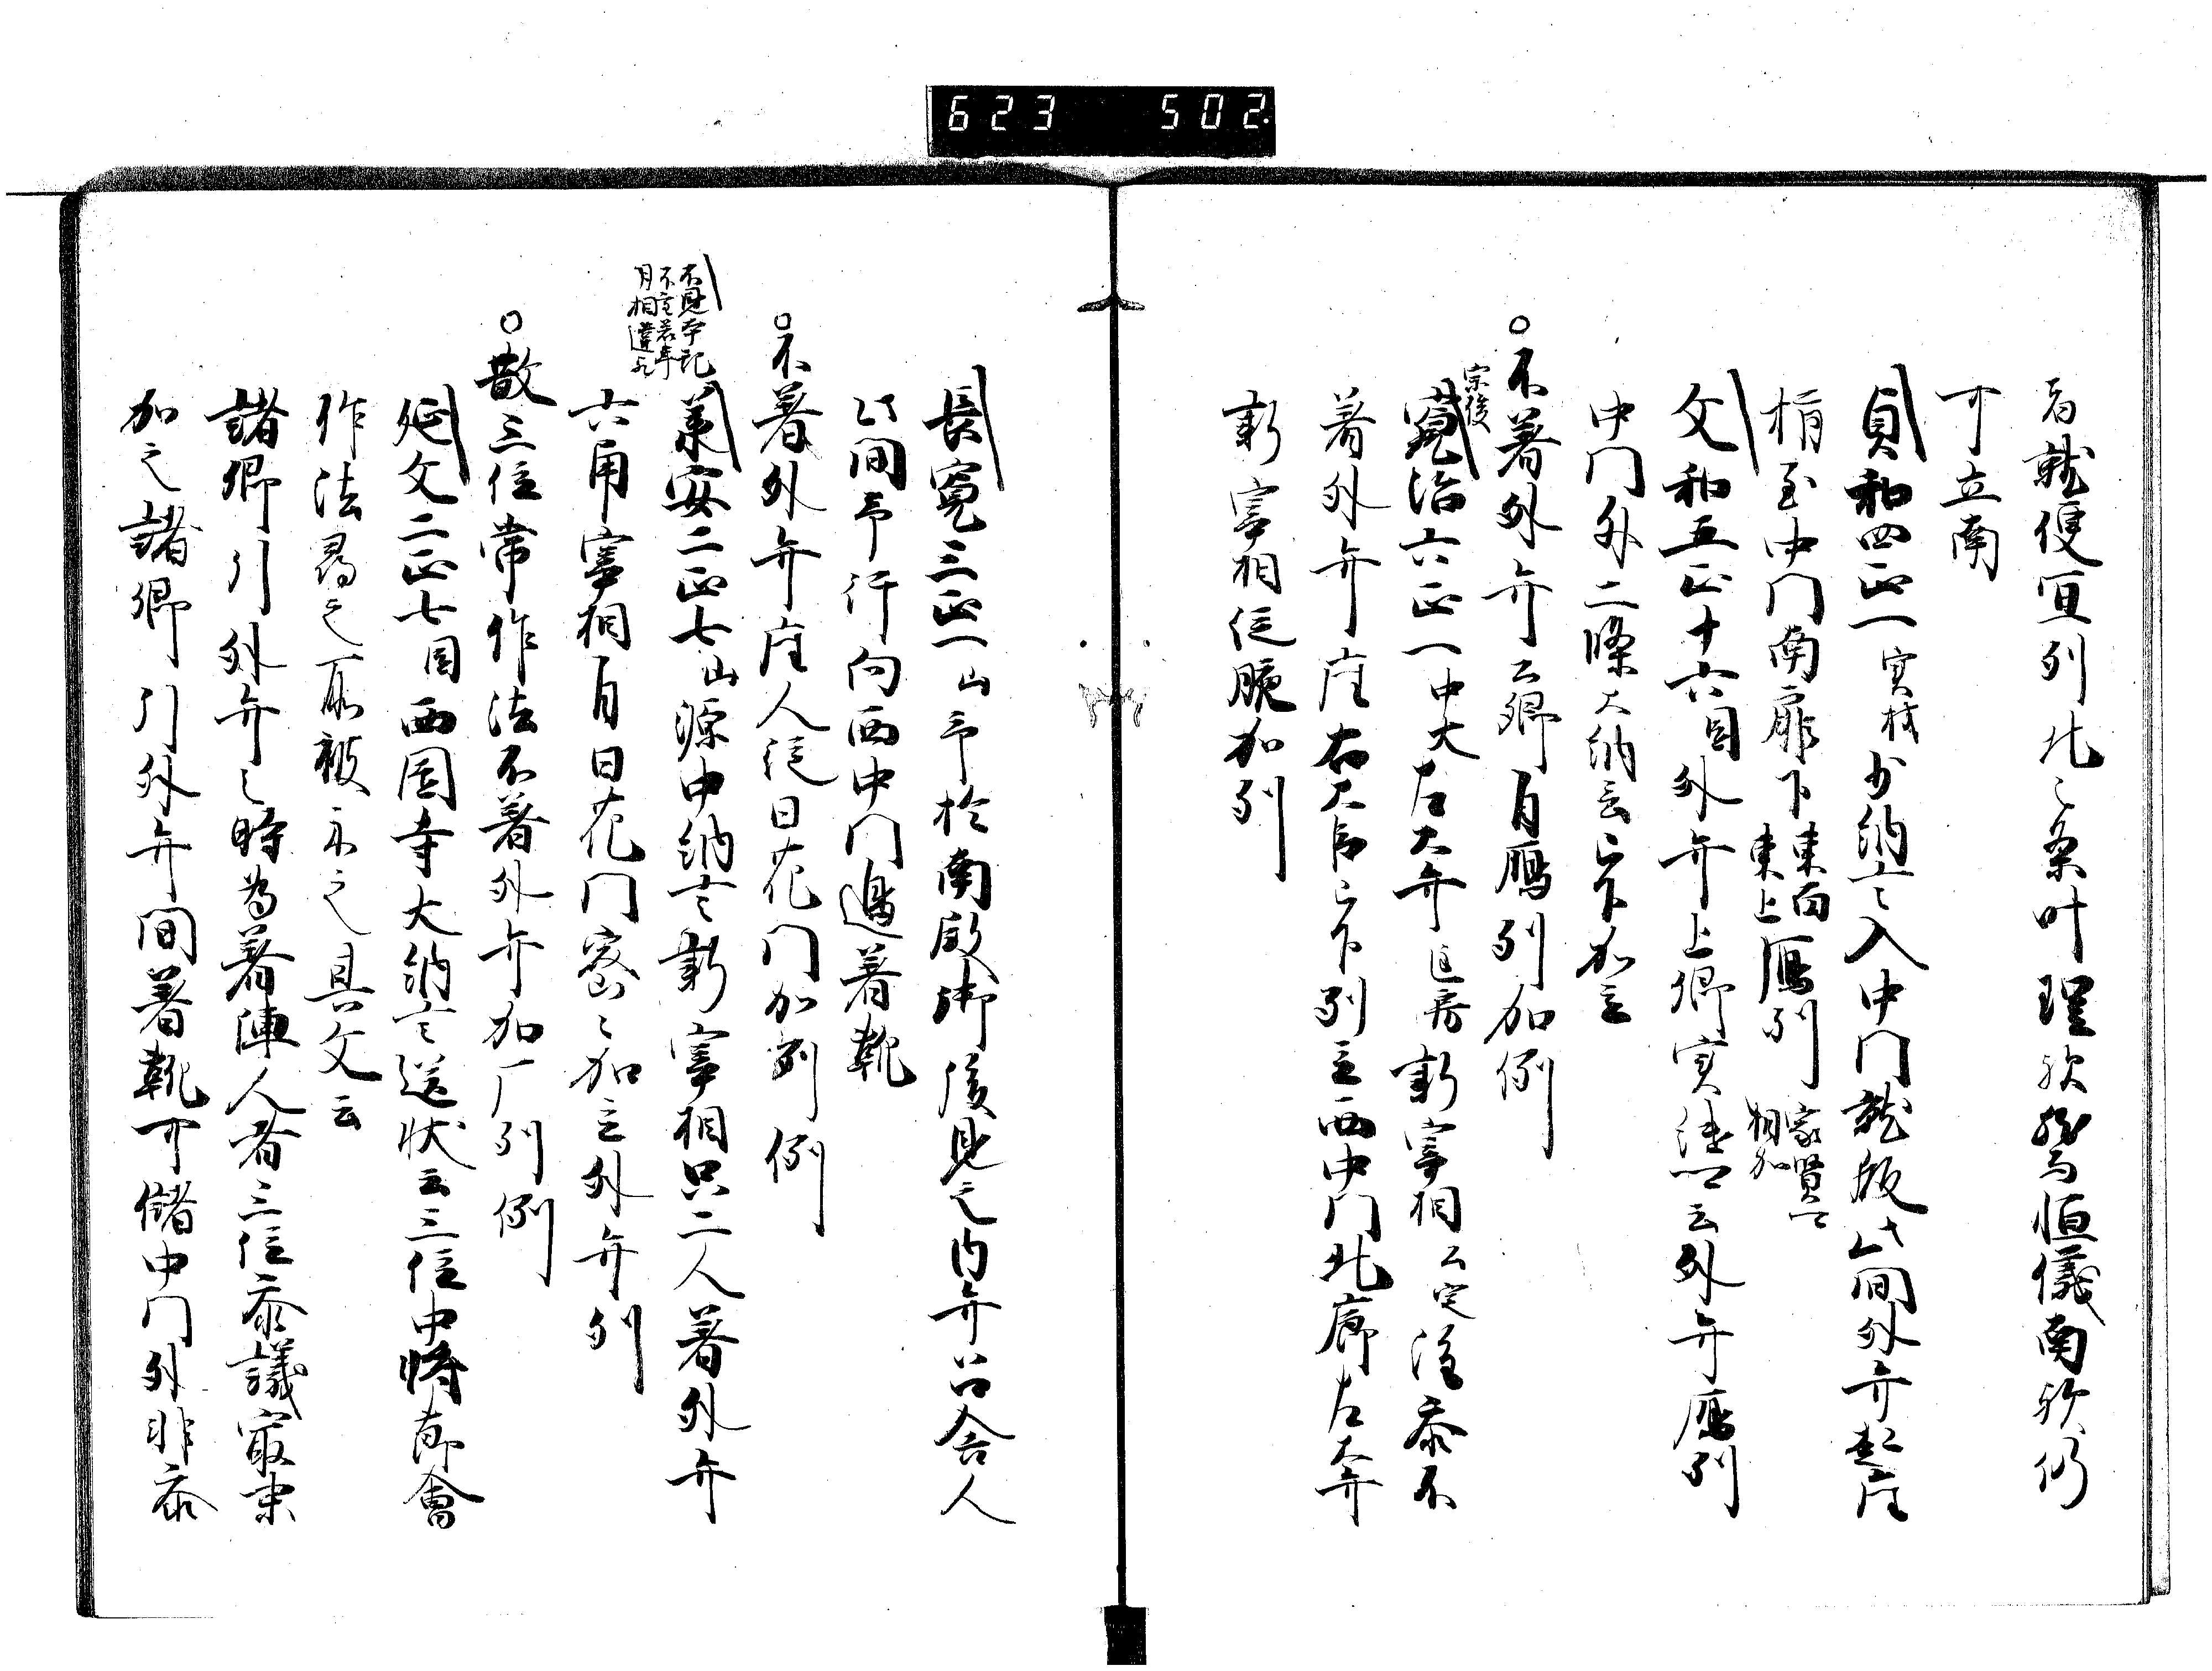 623 502
者就便宜列北之条叶理欤然而恒儀南欤仍
可立南
貞和四正一実材少納言入中門就版此間外弁起座
梢至中門南扉下東面東上鴈列家賢一相加
文和五正十六目外弁上卿実継卿云外弁鴈列
中門外二條大納言以下加立
○不著外弁公卿自鴈列加例
宗俊
寛治六正一中大左大弁匡房新宰相公定遅参不
著外弁座右大臣以下列立西中門北廊左大弁
新宰相従腋加列
長寛三正一山予於南殿御後見之内弁召舎人
此間予行向西中門邉著靴
○不著外弁座人従日花門加列例
不見本記
不審若年
月相違欤
兼安二正七山源中納言新宰相只二人著外弁
六角宰相自日花門密々加立外弁列
○散三位常作法不著外弁加厂列例
延文二正七目西園寺大納言送状云三位中将節會
作法尋之可被示之具文云
諸卿引外弁之時為著陣人者三位参議最末
加之諸卿引外弁間著靴可儲中門外非参